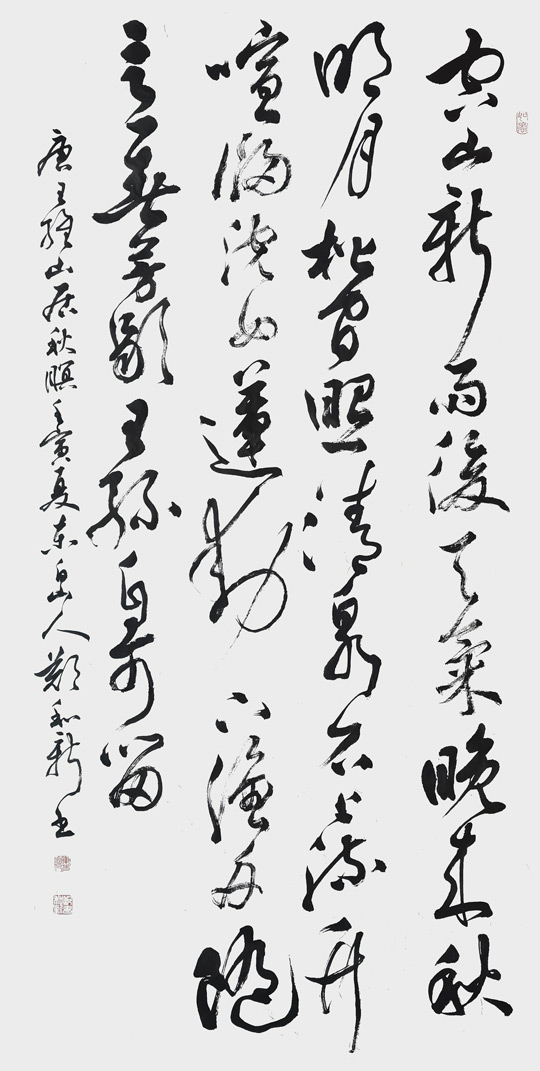 空山新雨後天氣晚來秋
明月松間照清泉石上流竹
喧歸浣女蓮動下漁舟隨
意春芳歇王孫自可留
唐王維山居秋暝壬寅夏東白山人鄭和新書